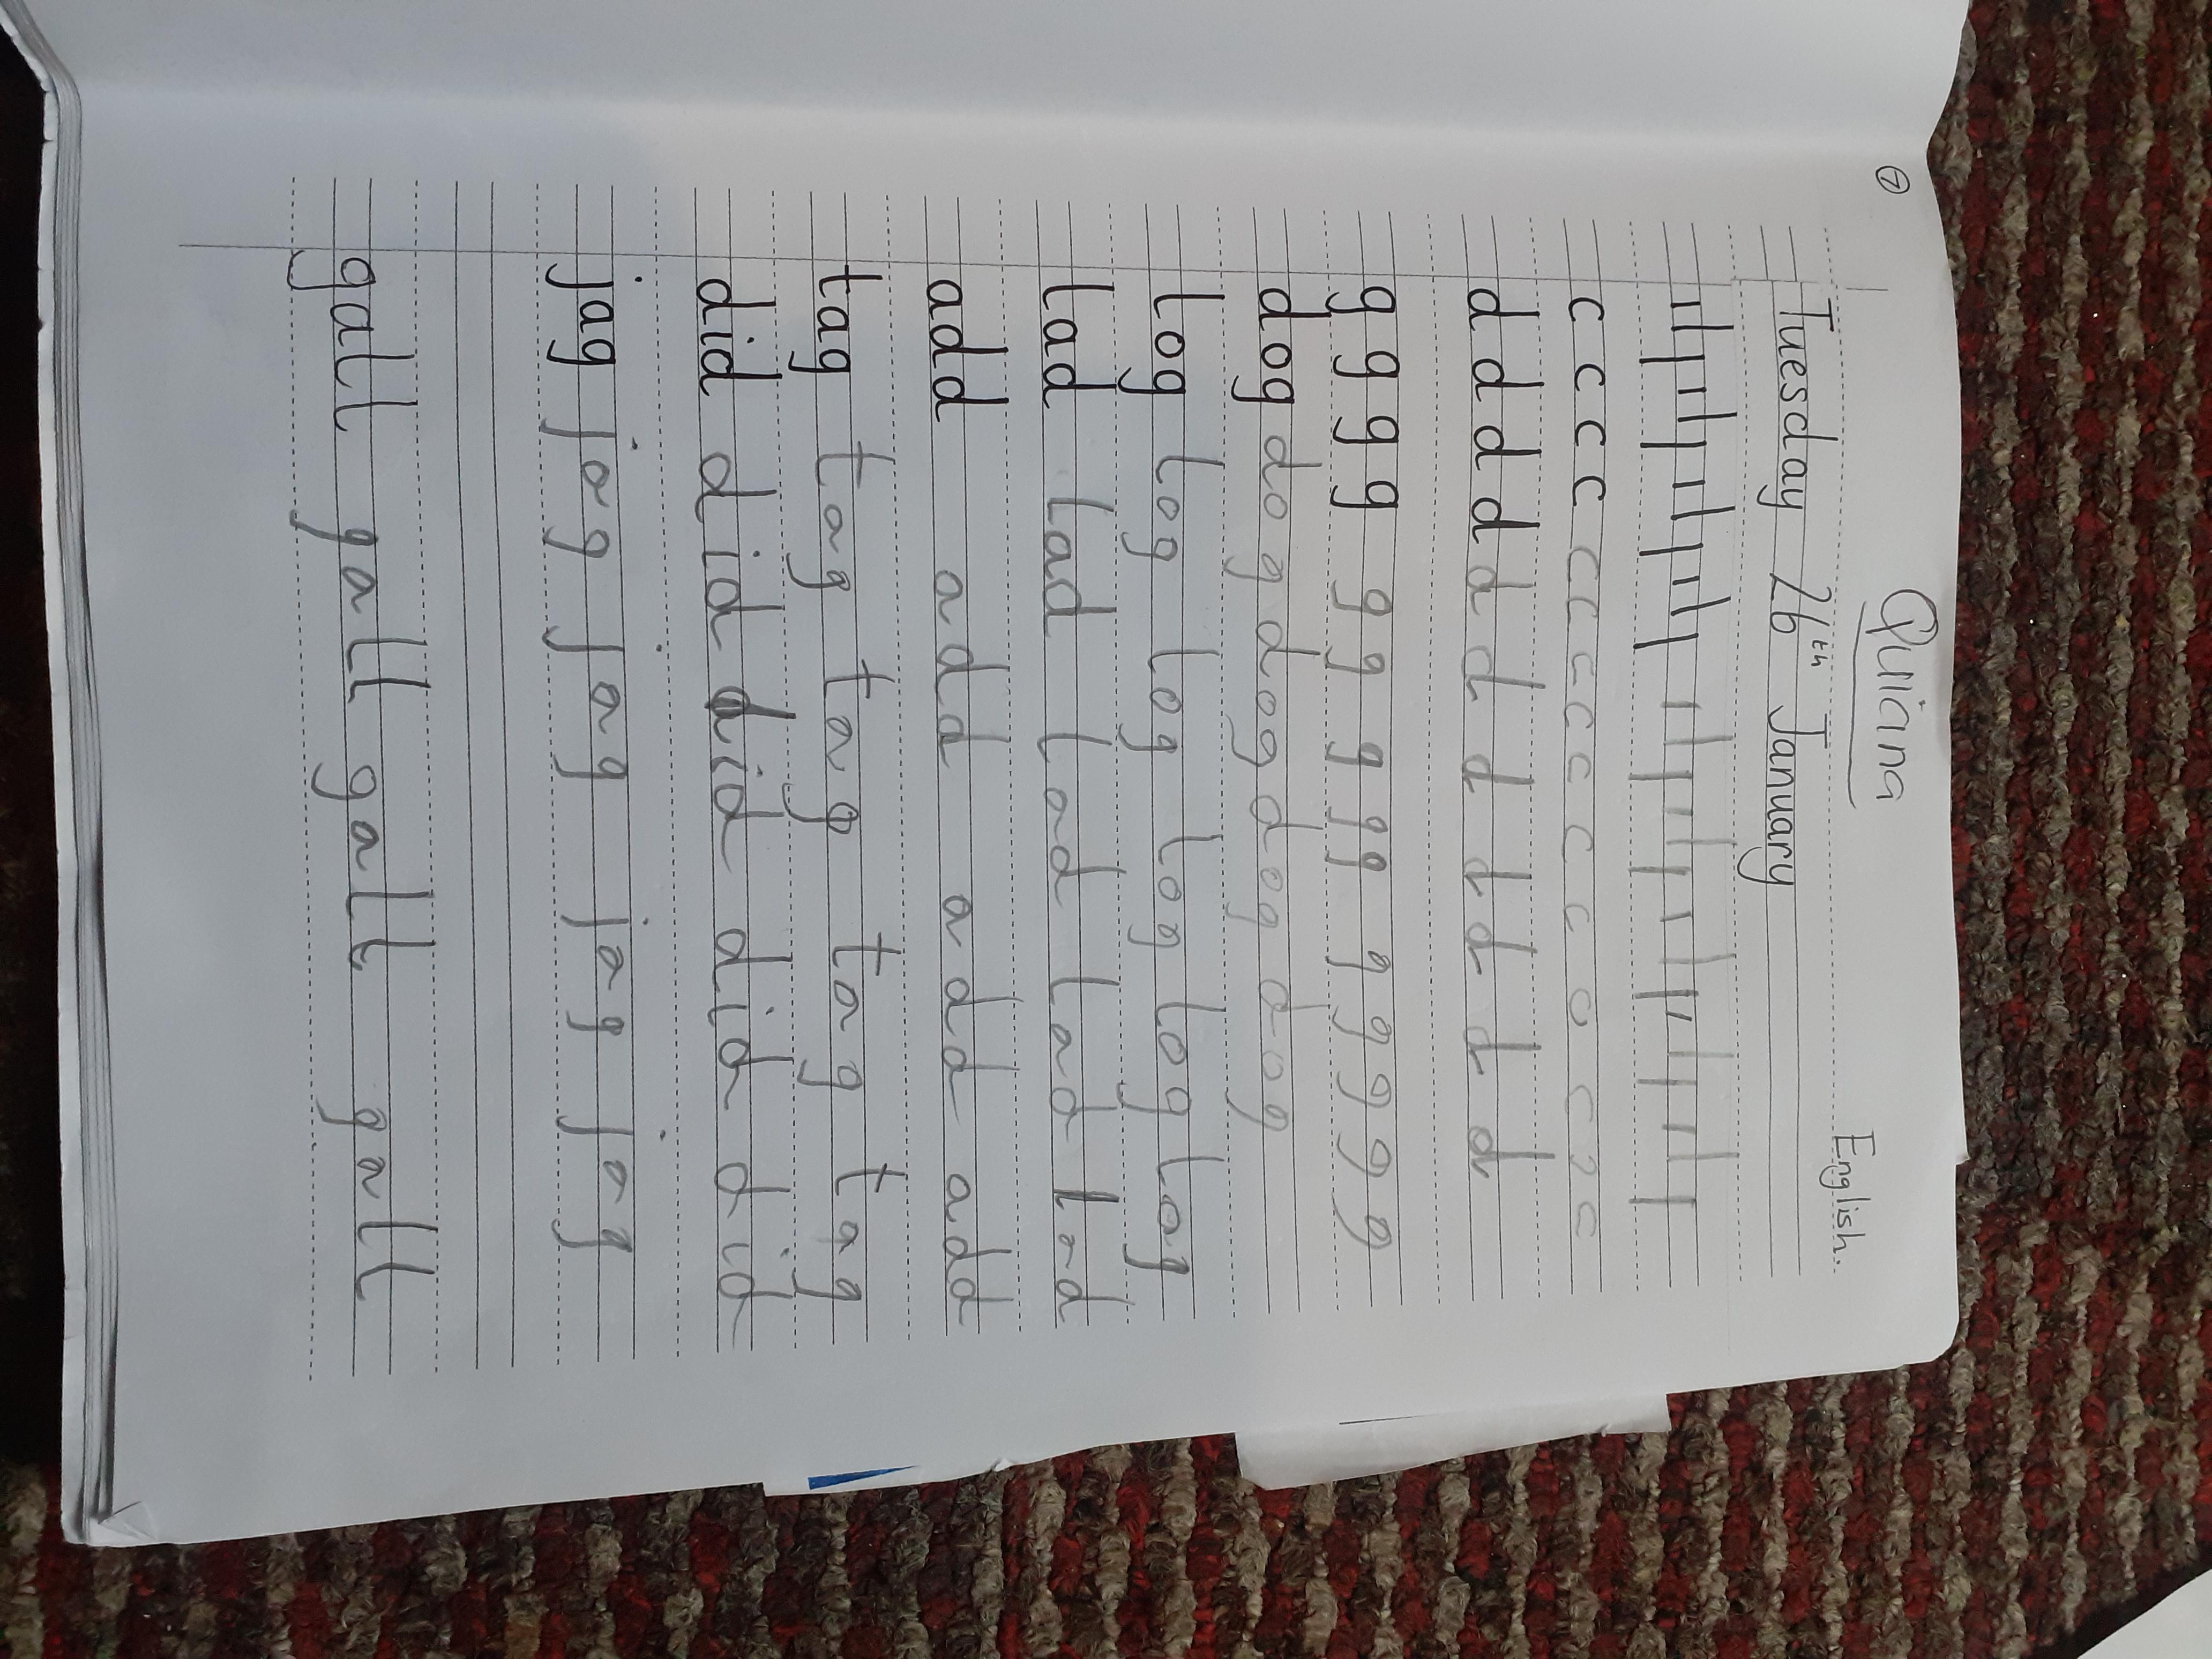 ⑦
Quiana
English.
Tuesday 26th January
c c c c c c c c c c c o c c c
d d d d d d d d d d d
g g g g g g g g g g g g g g
dog dog dog dog dog
log log log log log log
lad lad lad lad lad
add add add add
tag tag tag tag tag
did did did did did
jag jag jag jag jag
gall gall gall gall